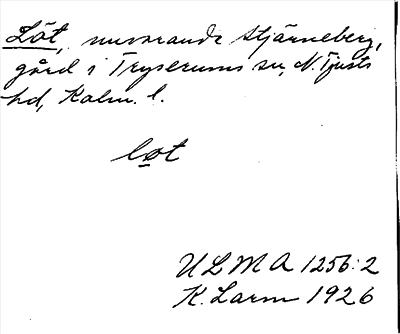 Löt, nuvarande Stjärneberg,
gård i Tryserums sn, N. Tjusts
hd, Kalm. l.
løt
ULMA 1256:2
K. Larm 1926